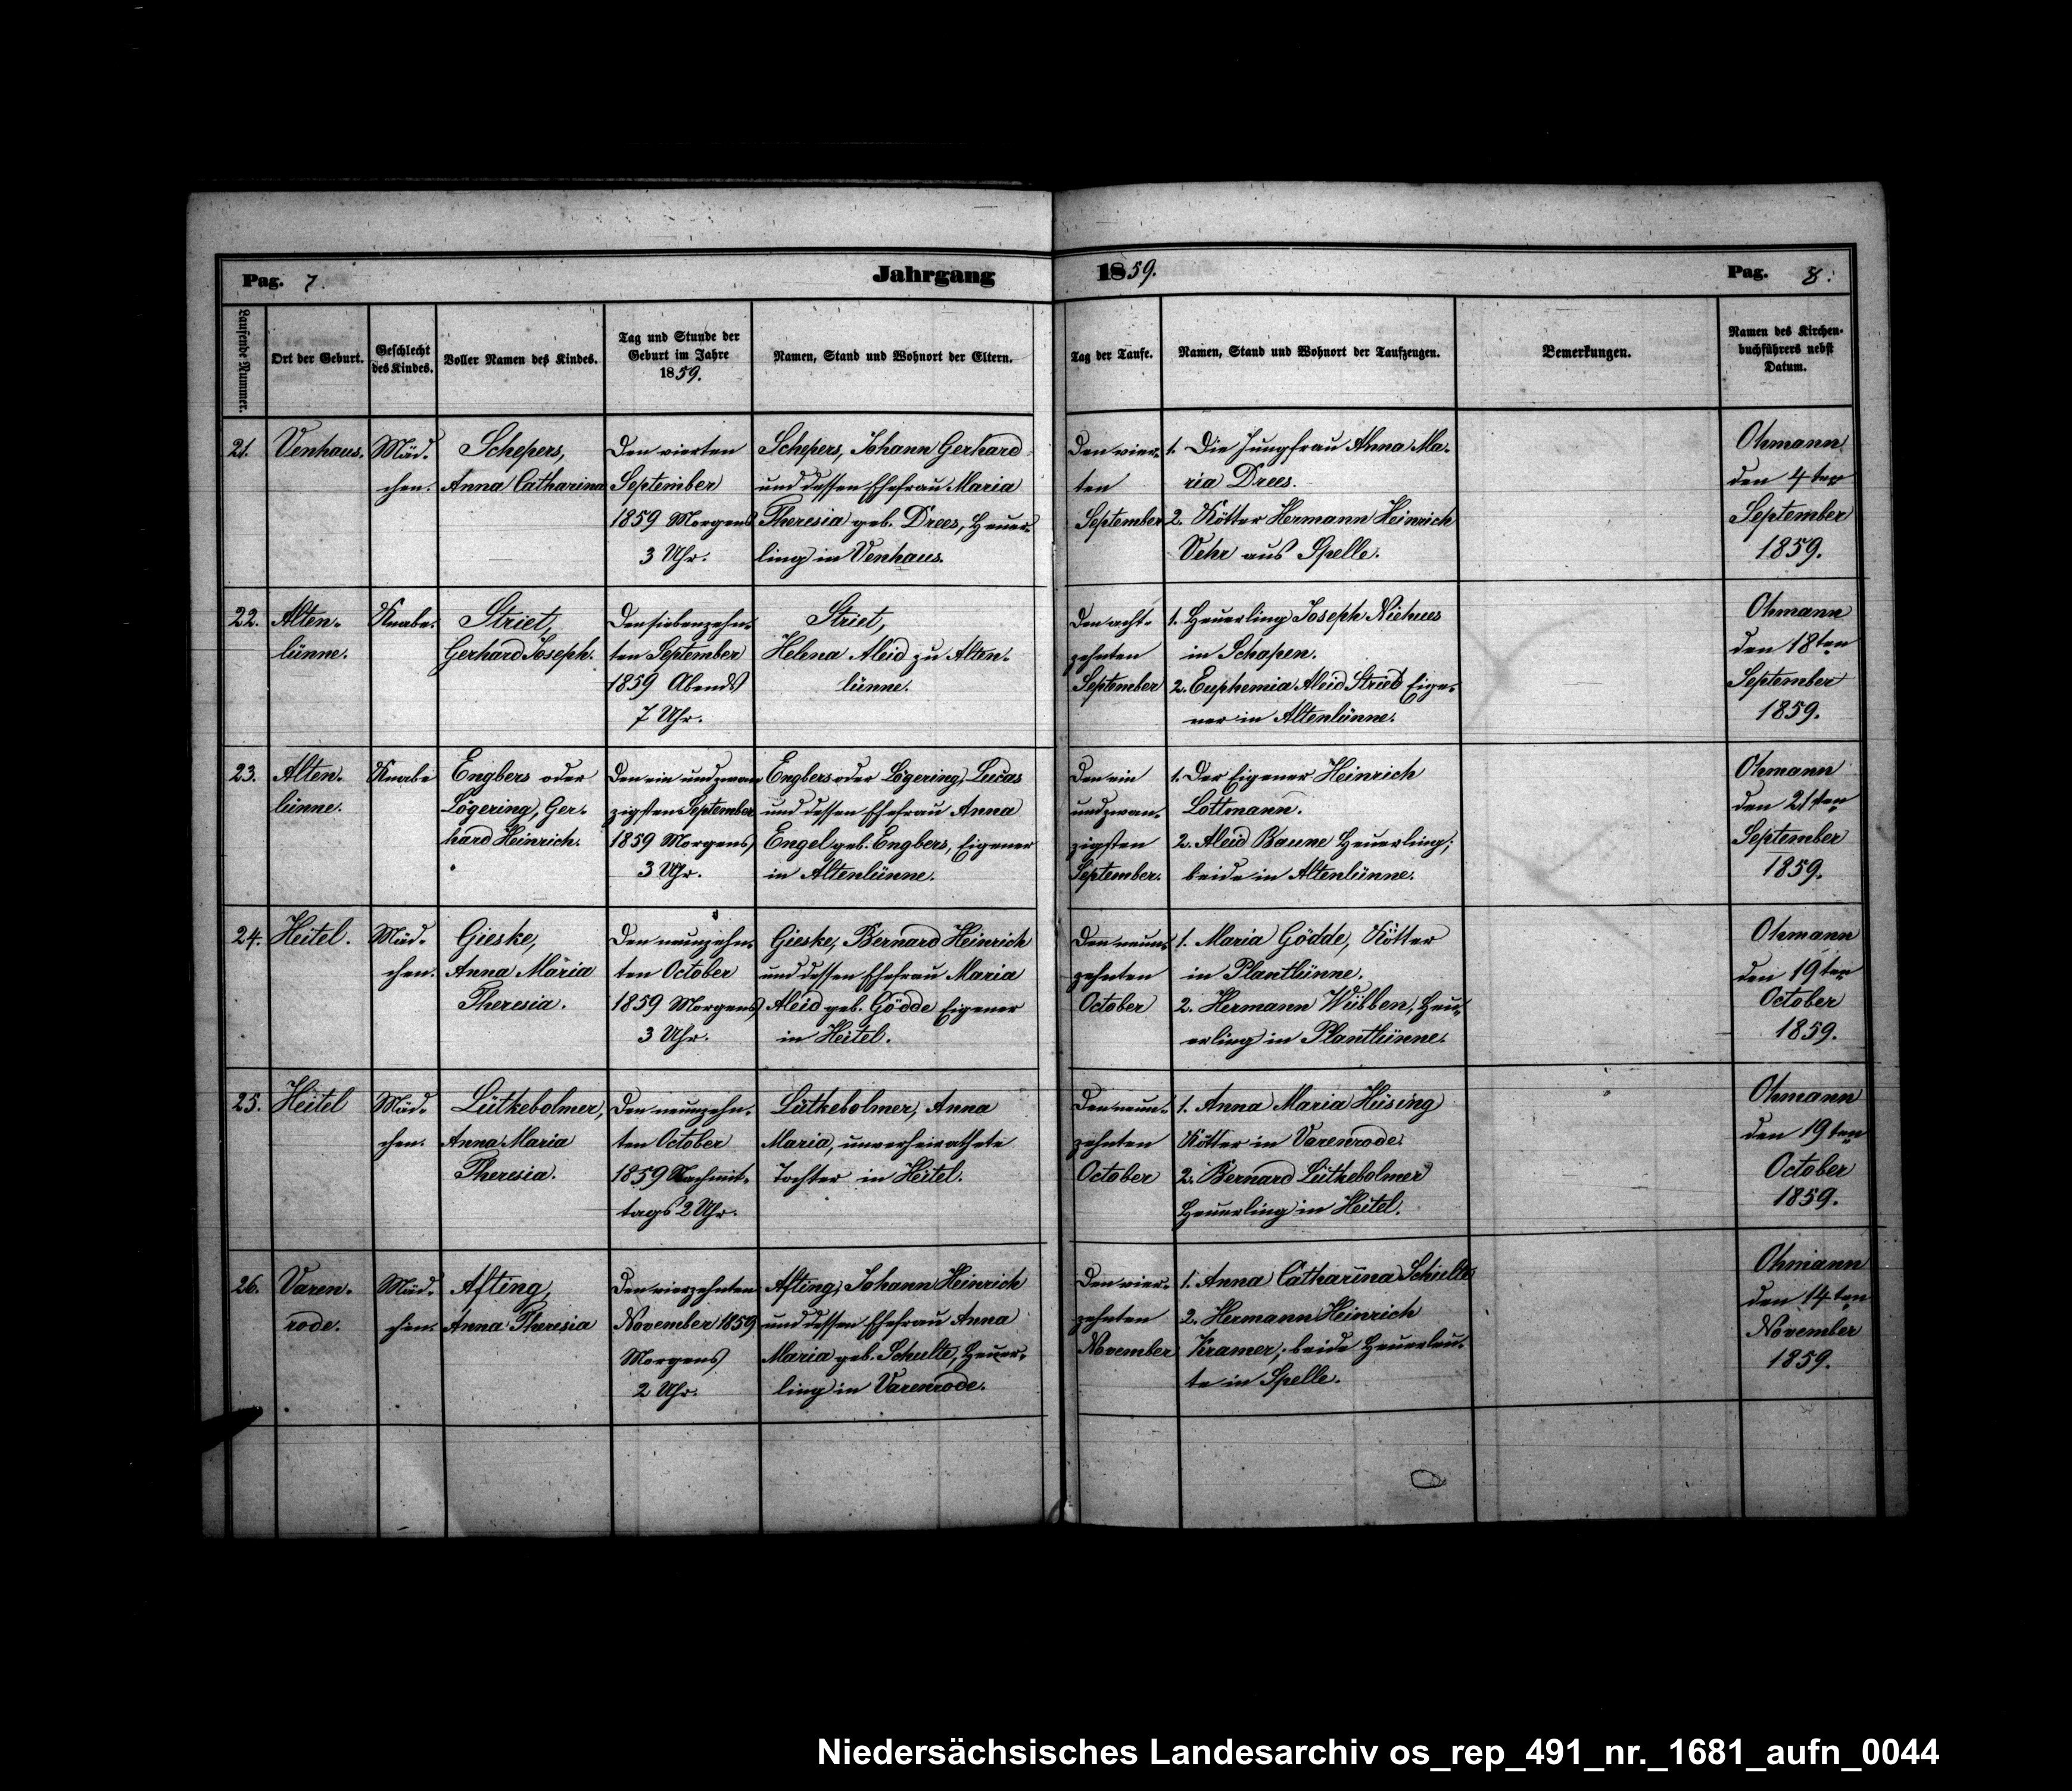 Pag. 7.
Jahrgang
1859.
Pag. 8.
Laufende Nummer.
Ort der Geburt.
Geschlecht
des Kindes.
Voller Namen des Kindes.
Tag und Stunde der
Geburt im Jahre
1859.
Namen, Stand und Wohnort der Eltern.
Tag der Taufe.
Namen, Stand und Wohnort der Taufzeugen.
Bemerkungen.
Namen des Kirchen-
buchführers nebst
Datum.
21.
Venhaus.
Mäd-
chen.
Schepers,
Anna Catharina
Den vierten
September
1859 Morgens
3 Uhr.
Schepers, Johann Gerhard
und dessen Ehefrau Maria
Theresia geb. Drees, Heuer-
ling in Venhaus.
Den vier-
ten
September
1. Die Jungfrau Anna Ma-
ria Drees.
2. Kötter Hermann Heinrich
Vehr aus Spelle.
Ohmann
den 4ten
September
1859.
22.
Alten-
lünne.
Knabe.
Striet,
Gerhard Joseph.
Den siebenzehn-
ten September
1859 Abends
7 Uhr.
Striet,
Helena Aleid zu Alten-
lünne.
Den acht-
zehnten
September
1. Heuerling Joseph Niehues
in Schapen.
2. Euphemia Aleid Striet Eige-
ner in Altenlünne.
Ohmann
den 18ten
September
1859.
23.
Alten-
lünne.
Knabe
Engbers oder
Lögering, Ger-
hard Heinrich.
Den ein und zwan
zigsten September
1859 Morgens
3 Uhr.
Engbers oder Lögering, Lucas
und dessen Ehefrau Anna
Engel geb. Engbers, Eigener
in Altenlünne.
Den ein
und zwan-
zigsten
September.
1. Der Eigener Heinrich
Lottmann.
2. Aleid Baune Heuerling;
beide in Altenlünne.
Ohmann
den 21sten
September
1859.
24.
Heitel.
Mäd-
chen.
Gieske,
Anna Maria
Theresia.
Den neunzehn-
ten October
1859 Morgens
3 Uhr.
Gieske, Bernard Heinrich
und dessen Ehefrau Maria
Aleid geb. Gödde Eigener
in Heitel.
Den neun-
zehnten
October
1. Maria Gödde, Kötter
in Plantlünne.
2. Hermann Wübben, Heu-
erling in Plantlünne.
Ohmann
den 19ten
October
1859.
25.
Heitel
Mäd-
chen.
Lütkebolmer,
Anna Maria
Theresia.
Den neunzehn-
ten October
1859 Nachmit-
tags 2 Uhr.
Lütkebolmer, Anna
Maria, unverheirathete
Tochter in Heitel.
Den neun-
zehnten
October
1. Anna Maria Hüsing
Kötter in Varenrode.
2. Bernard Lütkebolmer
Heuerling in Heitel.
Ohmann
den 19ten
October
1859.
26.
Varen-
rode.
Mäd-
chen.
Afting,
Anna Theresia
Den vierzehnten
November 1859
Morgens
2 Uhr.
Afting, Johann Heinrich
und dessen Ehefrau Anna
Maria geb. Schulte, Heuer-
ling in Varenrode.
Den vier-
zehnten
November
1. Anna Catharina Schulte
2. Hermann Heinrich
Kramer, beide Heuerleu-
te in Spelle.
Ohmann
den 14ten
November
1859.
Niedersächsisches Landesarchiv os_rep_491_nr._1681_aufn_0044